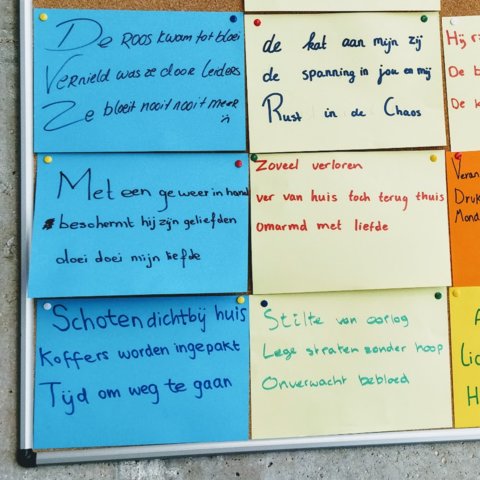 De Roos kwam tot bloei
Vernield was ze door Leiders
Ze bloeit nooit nooit meer
de kat aan mijn zij
de spanning in jou en mij
Rust in de Chaos
Hij
De
De
Met een geweer in hand
beschermt hij zijn geliefden
doei doei mijn liefde
Zoveel verloren
ver van huis toch terug thuis
omarmd met liefde
Veran
Druk
Mond
Schoten dichtbij huis
Koffers worden ingepakt
Tijd om weg te gaan
Stilte van oorlog
Lege straten zonder hoop
Onverwacht bebloed